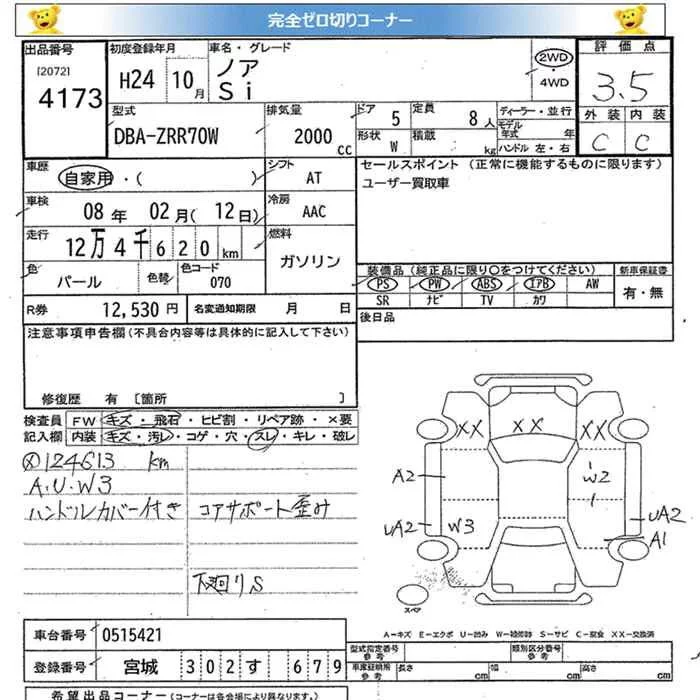 完全ゼロ切りコーナー
出品番号 初度登録年月 車名・グレード 評価点
[2072] 4173 H24 10月 ノア Si 2WD ・ 4WD 3.5
型式 排気量 ドア 5 定員 8人 ディーラー・並行 外装 内装
DBA-ZRR70W 2000cc 形状 W 積載 kg モデル年式 年 C C
ハンドル 左・右
車歴 自家用・( ) シフト AT セールスポイント (正常に機能するものに限ります)
ユーザー買取車
車検 08年 02月(12日) 冷房 AAC
走行 12万4千620km 燃料 ガソリン
色 パール 色替 色コード 070
装備品 (純正品に限り○をつけてください) 新車保証書
PS PW ABS エアB AW 有・無
SR ナビ TV カワ
R券 12,530円 名変通知期限 月 日 後日品
注意事項申告欄(不具合内容等は具体的に記入して下さい)
修復歴 有 [箇所 ]
検査員 FW キズ・飛石・ヒビ割・リペア跡・×要
記入欄 内装 キズ・汚レ・コゲ・穴・スレ・キレ・破レ
124613 km
A.U.W3
ハンドルカバー付き コアサポート歪み
下廻りS
XX XX XX
A2 W2
UA2 W3 UA2
A1
スペア
A-キズ E-エクボ U-凹み W-補修跡 S-サビ C-腐食 XX-交換済
車台番号 0515421 型式指定番号 参考 類別区分番号 参考
登録番号 宮城 302 す 679 車庫証明用 参考 長さ cm 幅 cm 高さ cm
希望出品コーナー(コーナーは各会場により異なります。)